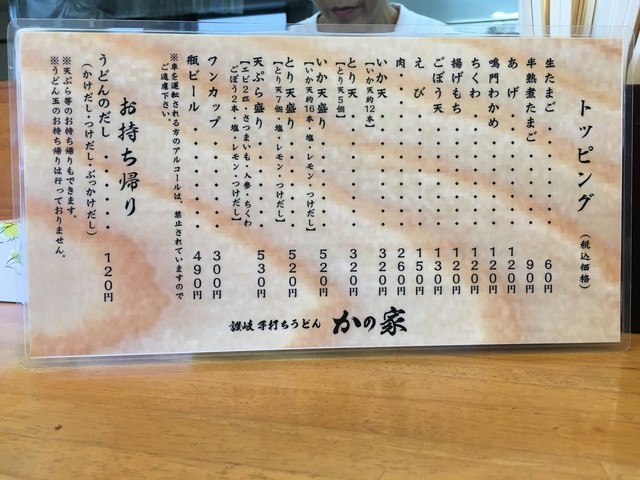 トッピング（税込価格）
生たまご・・・・・・・・・60円
半熟煮たまご・・・・・・・90円
あげ・・・・・・・・・・120円
鳴門わかめ・・・・・・・120円
ちくわ・・・・・・・・・120円
揚げもち・・・・・・・・120円
ごぼう天・・・・・・・・130円
えび・・・・・・・・・・150円
肉・・・・・・・・・・・260円
いか天・・・・・・・・・320円
【いか天約12本】
とり天・・・・・・・・・320円
【とり天5個】
いか天盛り・・・・・・・520円
【いか天約16本・塩・レモン・つけだし】
とり天盛り・・・・・・・520円
【とり天7個・塩・レモン・つけだし】
天ぷら盛り・・・・・・・530円
【エビ2匹・さつまいも・人参・ちくわ
ごぼう2本・塩・レモン・つけだし】
ワンカップ・・・・・・・300円
瓶ビール・・・・・・・・490円
※車を運転される方のアルコールは、禁止されていますので
ご遠慮下さい。
お持ち帰り
うどんのだし・・・・・・120円
（かけだし・つけだし・ぶっかけだし）
※天ぷら等のお持ち帰りもできます。
※うどん玉のお持ち帰りは行っておりません。
讃岐手打ちうどん かの家